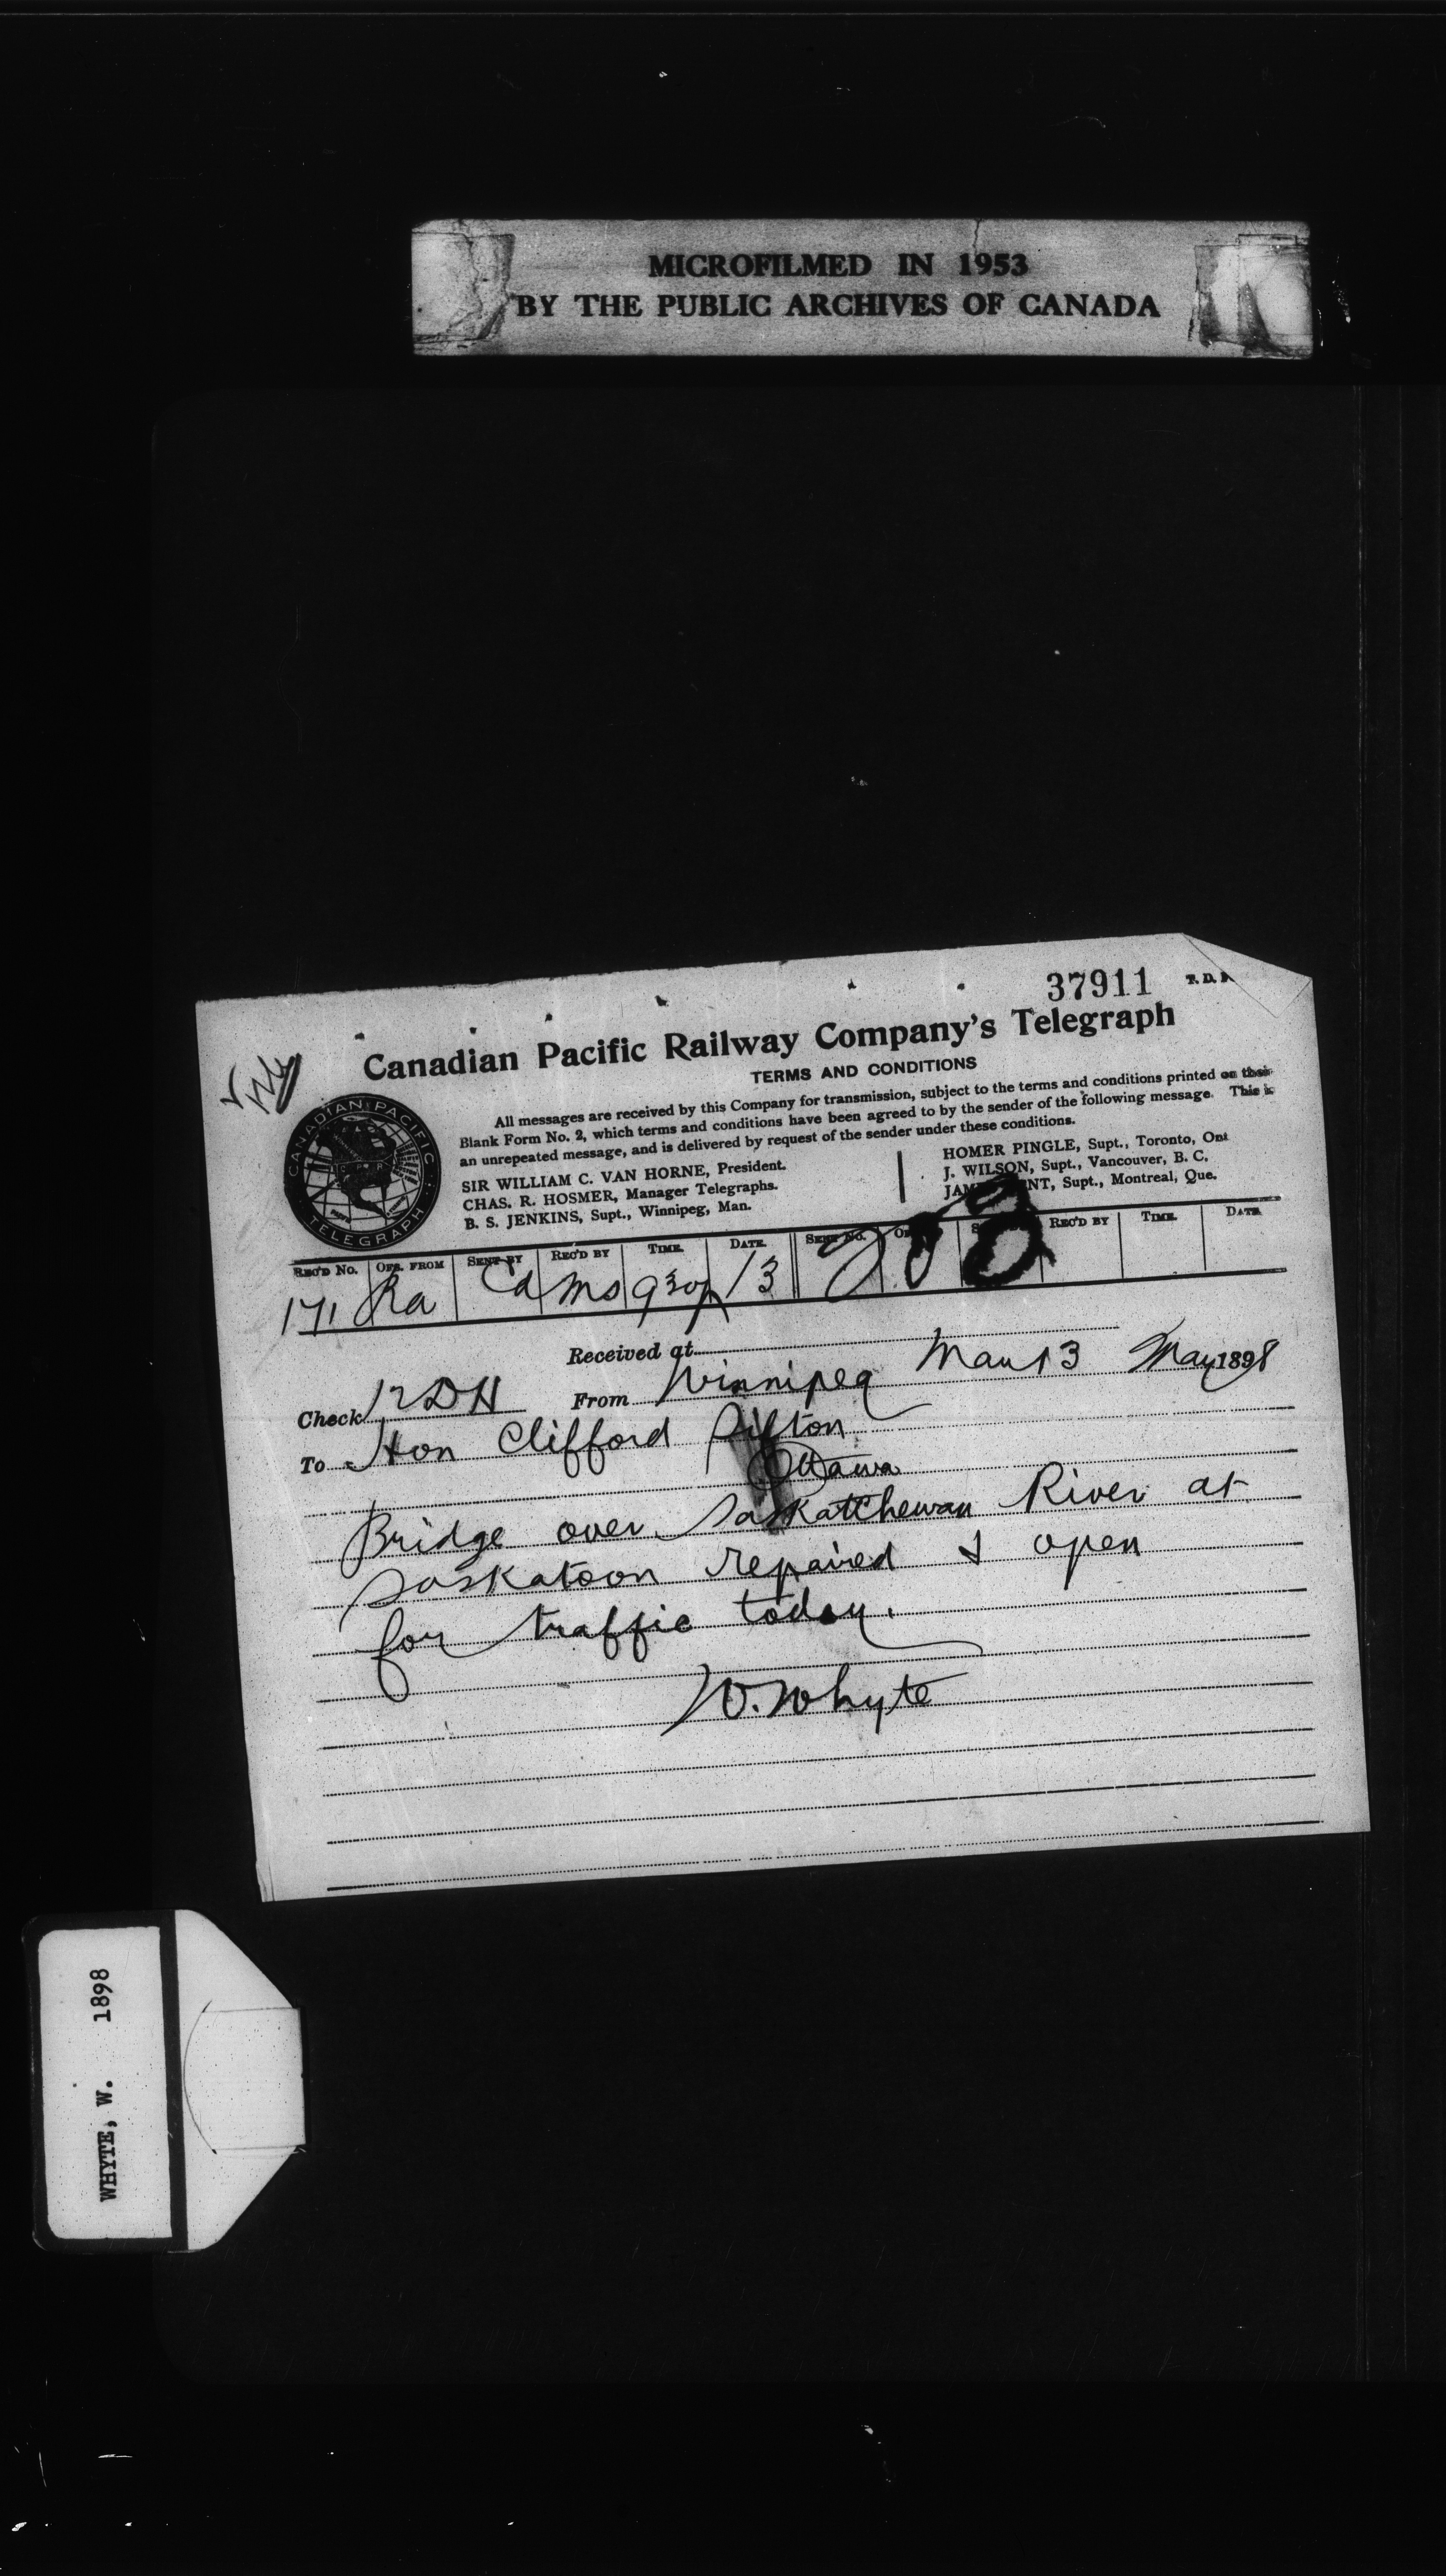 MICROFILMED IN 1953
BY THE PUBLIC ARCHIVES OF CANADA
37911 T. D.
Canadian Pacific Railway Company's Telegraph
TERMS AND CONDITIONS
All messages are received by this Company for transmission, subject to the terms and conditions printed on their
Blank Form No. 2, which terms and conditions have been agreed to by the sender of the following message. This is
an unrepeated message, and is delivered by request of the sender under these conditions.
SIR WILLIAM C. VAN HORNE, President.
CHAS. R. HOSMER, Manager Telegraphs.
B. S. JENKINS, Supt., Winnipeg, Man.
HOMER PINGLE, Supt., Toronto, Ont
J. WILSON, Supt., Vancouver, B. C.
NT, Supt., Montreal, Que.
CANADIAN PACIFIC
TELEGRAPH
REC'D No. OFS. FROM SENT BY REC'D BY TIME. DATE. SENT NO. REC'D BY TIME. DATE
171 Ra Ca Ms 930p 13 208
Received at
Check 12 DH From Winnipeg Man 13 May 1898
To Hon Clifford Sifton
Ottawa
Bridge over Saskatchewan River at
Saskatoon repaired & open
for traffic today.
W. Whyte
WHYTE, W. 1898